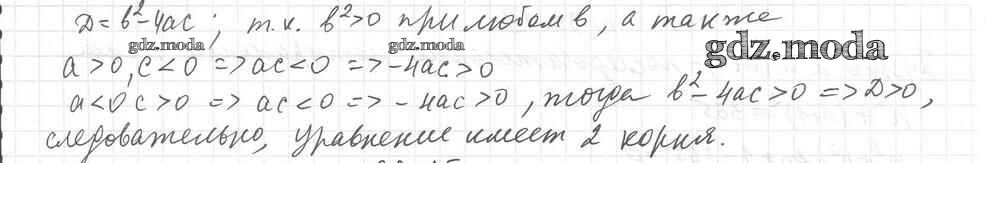 D = b² - 4ac ; т.к. b² > 0 при любом b, а также
gdz.moda gdz.moda gdz.moda
a > 0, c < 0 => ac < 0 => -4ac > 0
a < 0 c > 0 => ac < 0 => -4ac > 0, тогда b² - 4ac > 0 => D > 0,
следовательно, уравнение имеет 2 корня.